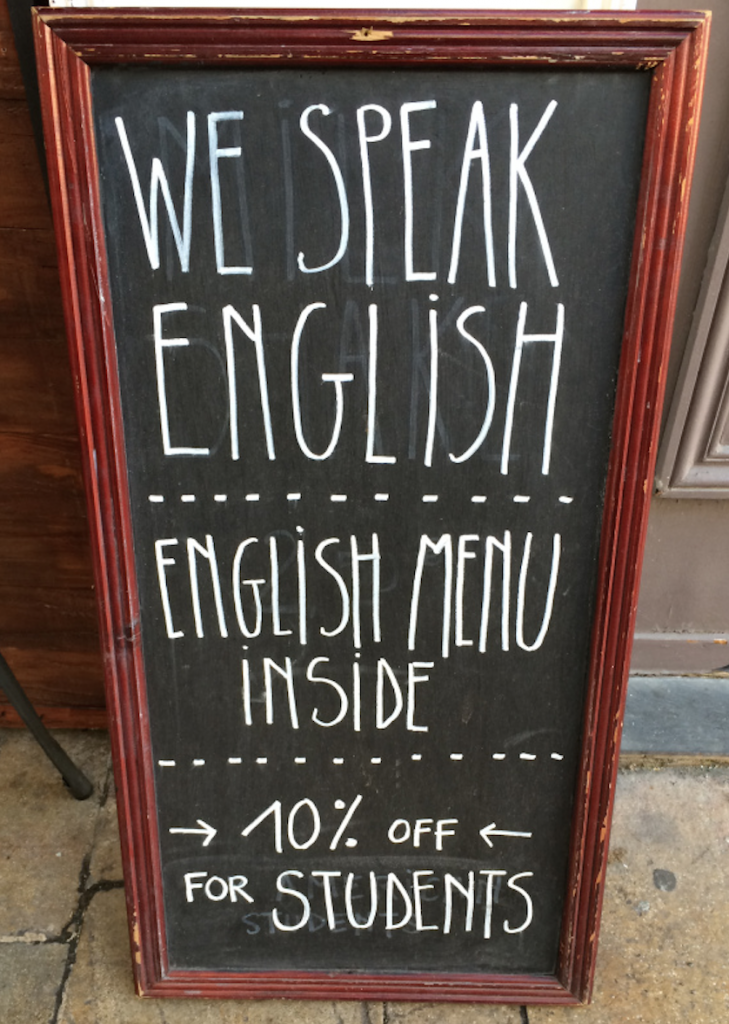 WE SPEAK
ENGLiSH
ENGLiSH MENU
iNSiDE
→ 10% OFF ←
FOR STUDENTS